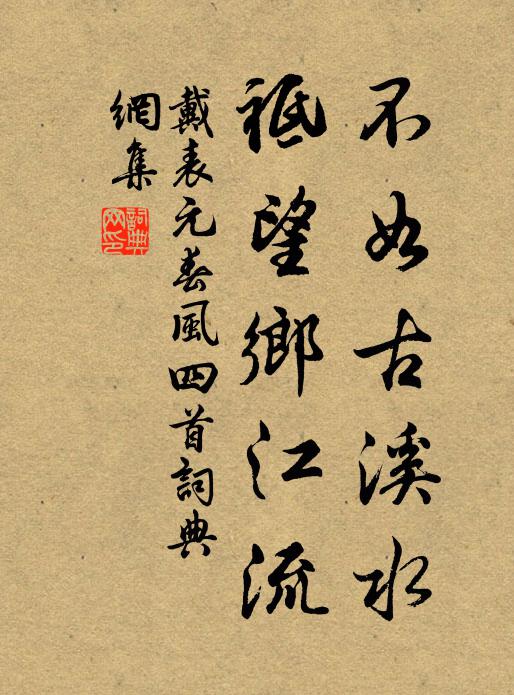 不如古溪水
祗望鄉江流
戴表元春風四首詞典
網集
詞典
网印